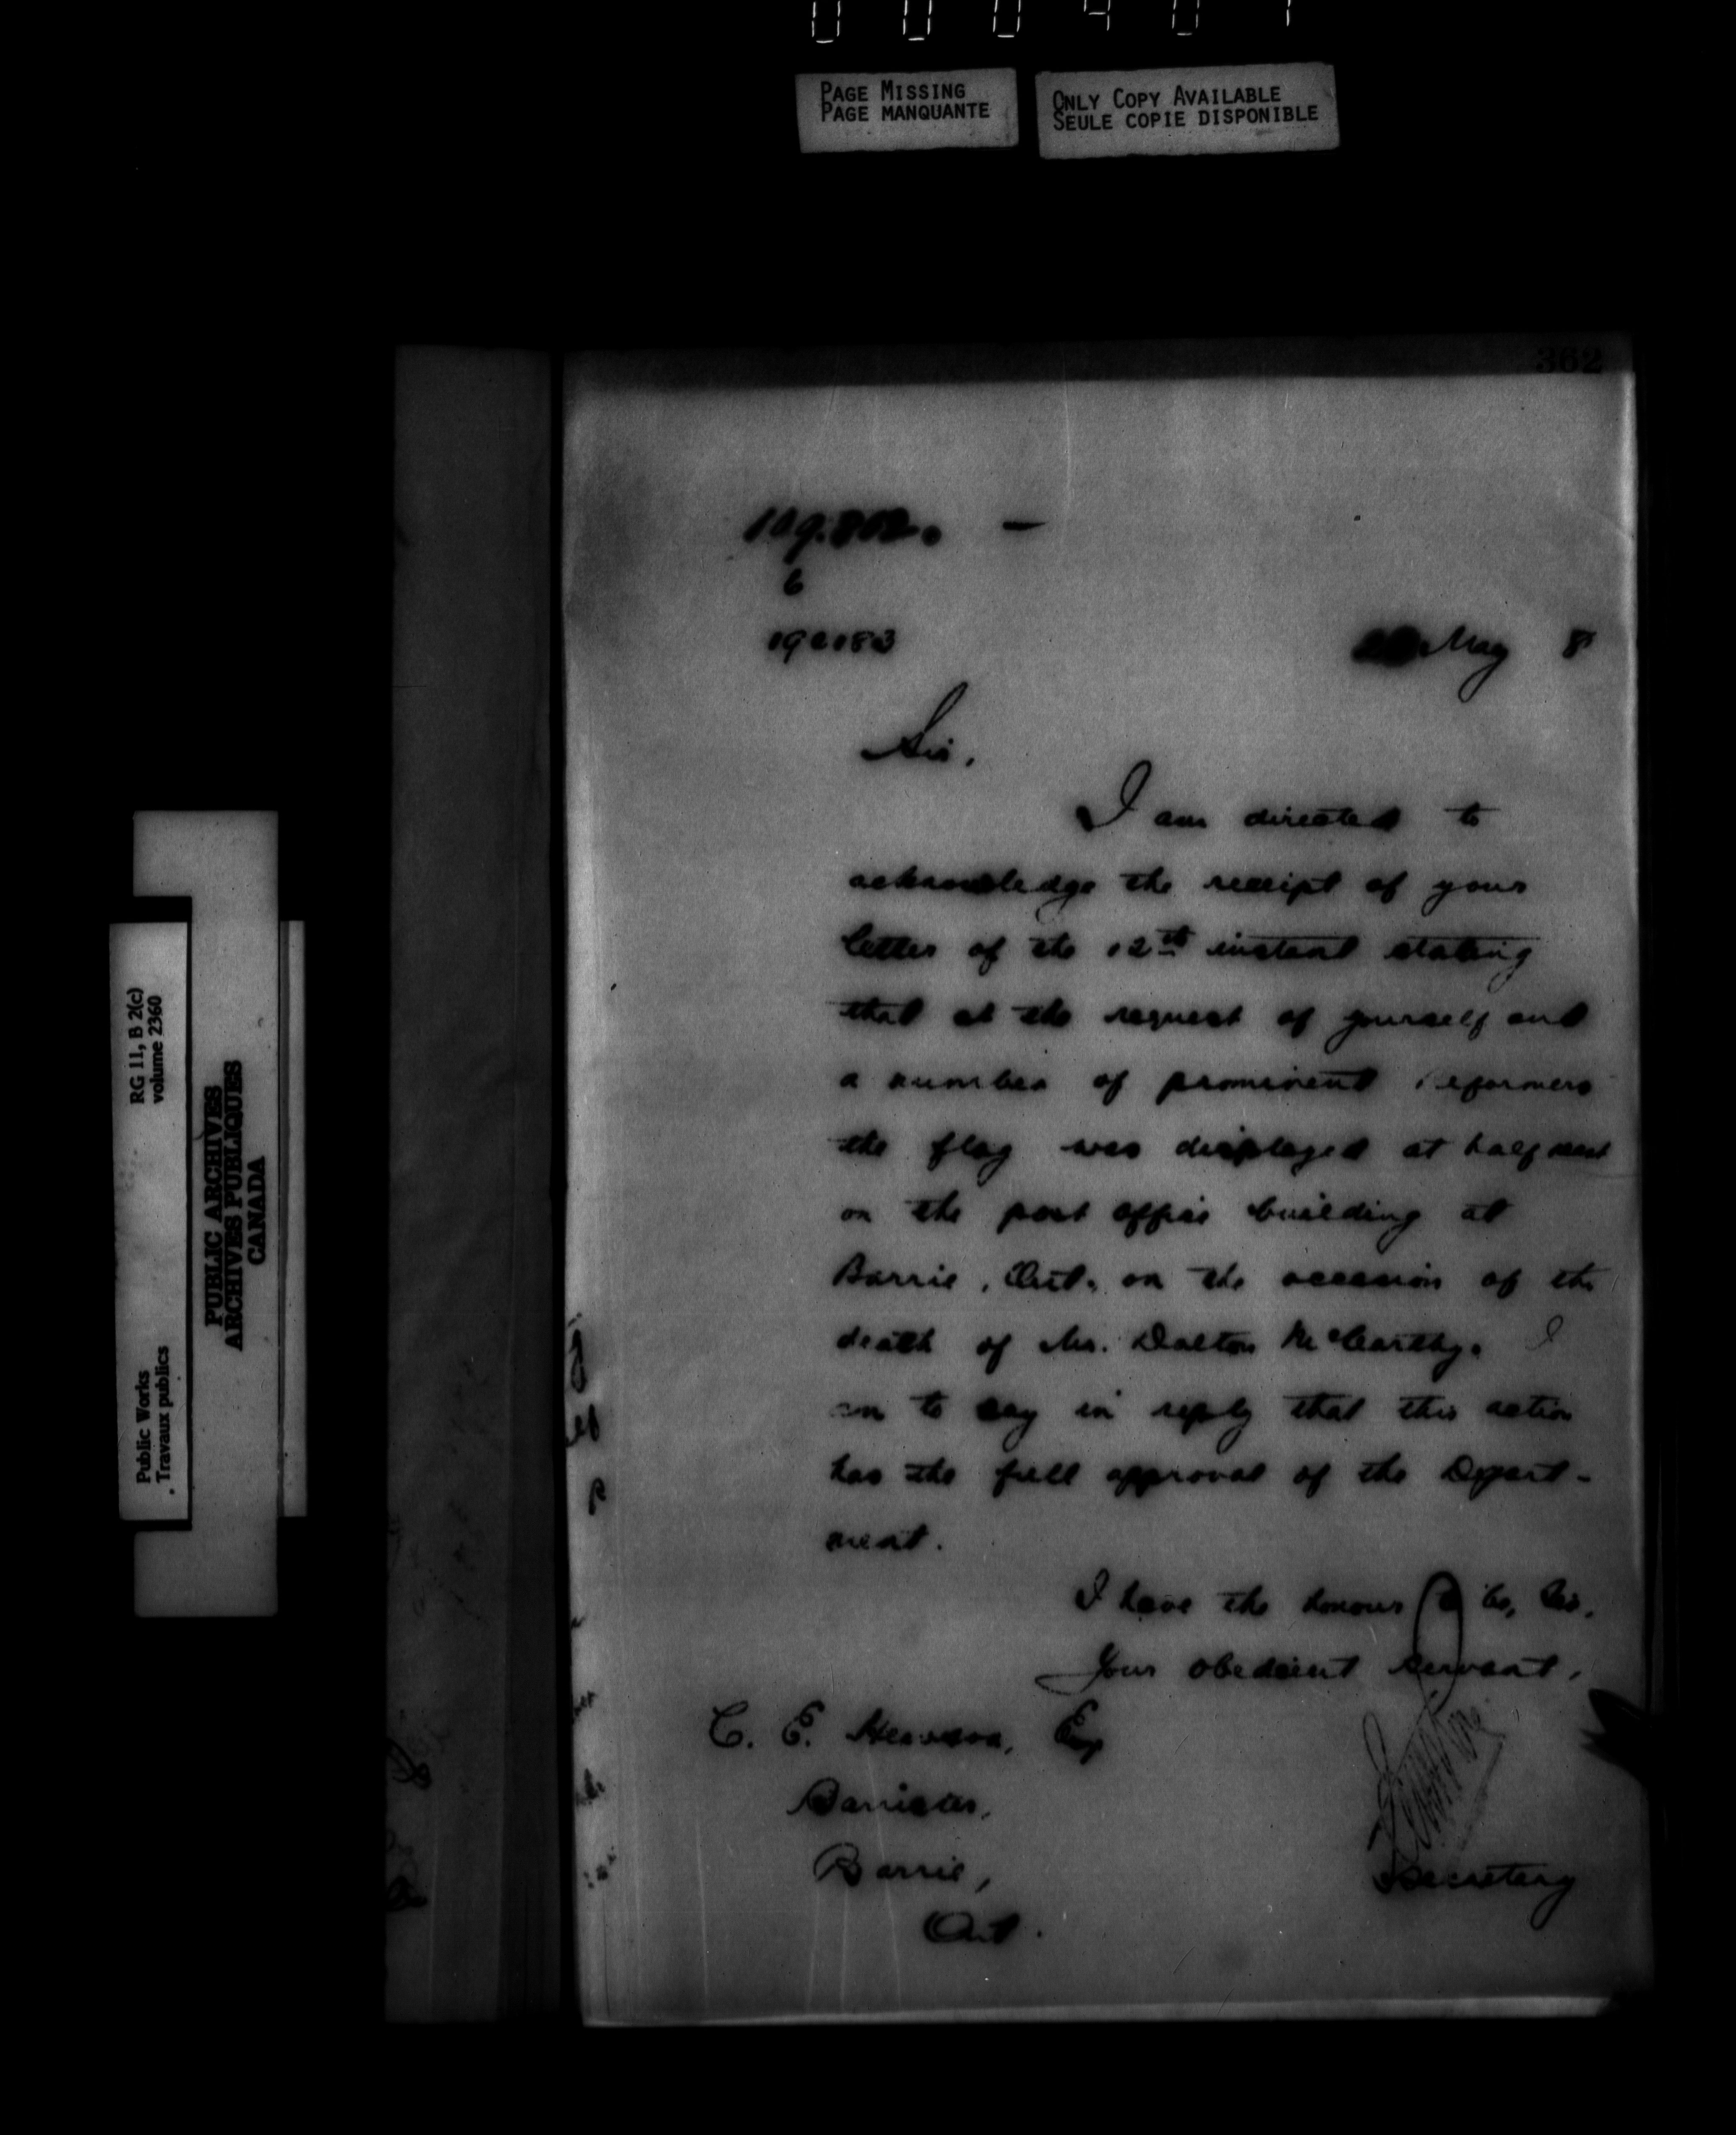 PAGE MISSING
PAGE MANQUANTE
ONLY COPY AVAILABLE
SEULE COPIE DISPONIBLE
362
6
May 8
Sir,
I am directed to
acknowledge the receipt of your
letter of the 12th instant stating
that at the request of yourself and
a number of prominent Reformers
the flag was displayed at half mast
on the post office building at
Barrie, Ont. on the occasion of the
death of Mr. Dalton McCarthy. I
am to say in reply that this action
has the full approval of the Depart-
ment.
I have the honour to be, Sir,
Your obedient servant,
C. E. Hewson, Esq
Barrister,
Barrie,
Ont.
Secretary
RG 11, B 2(c)
volume 2360
Public Works
Travaux publics
PUBLIC ARCHIVES
ARCHIVES PUBLIQUES
CANADA